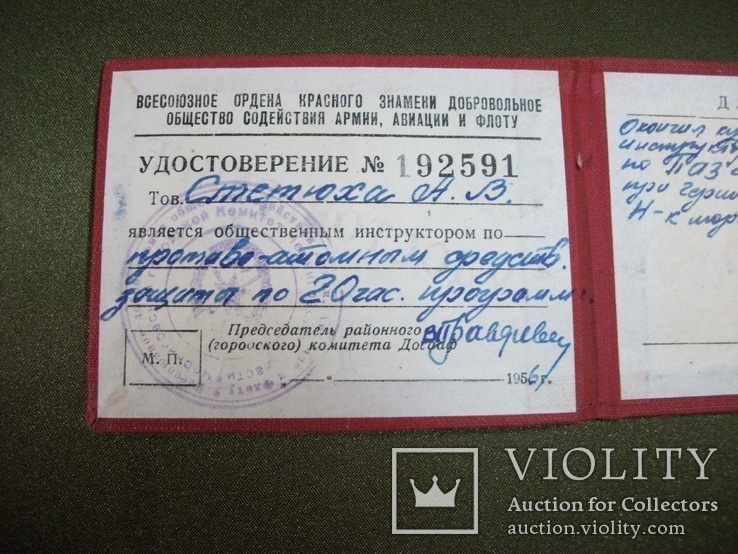 ВСЕСОЮЗНОЕ ОРДЕНА КРАСНОГО ЗНАМЕНИ ДОБРОВОЛЬНОЕ
ОБЩЕСТВО СОДЕЙСТВИЯ АРМИИ, АВИАЦИИ И ФЛОТУ
УДОСТОВЕРЕНИЕ № 192591
Тов. Стетюха А. В.
является общественным инструктором по
противо-атомным средств.
защиты по 20 час. программе.
Председатель районного
(городского) комитета Досааф
М. П.
„ “ 1956 г.
Д
Окончил
инструкт
по ПАЗ
при
Н-к мор
VIOLITY
Auction for Collectors
auction.violity.com